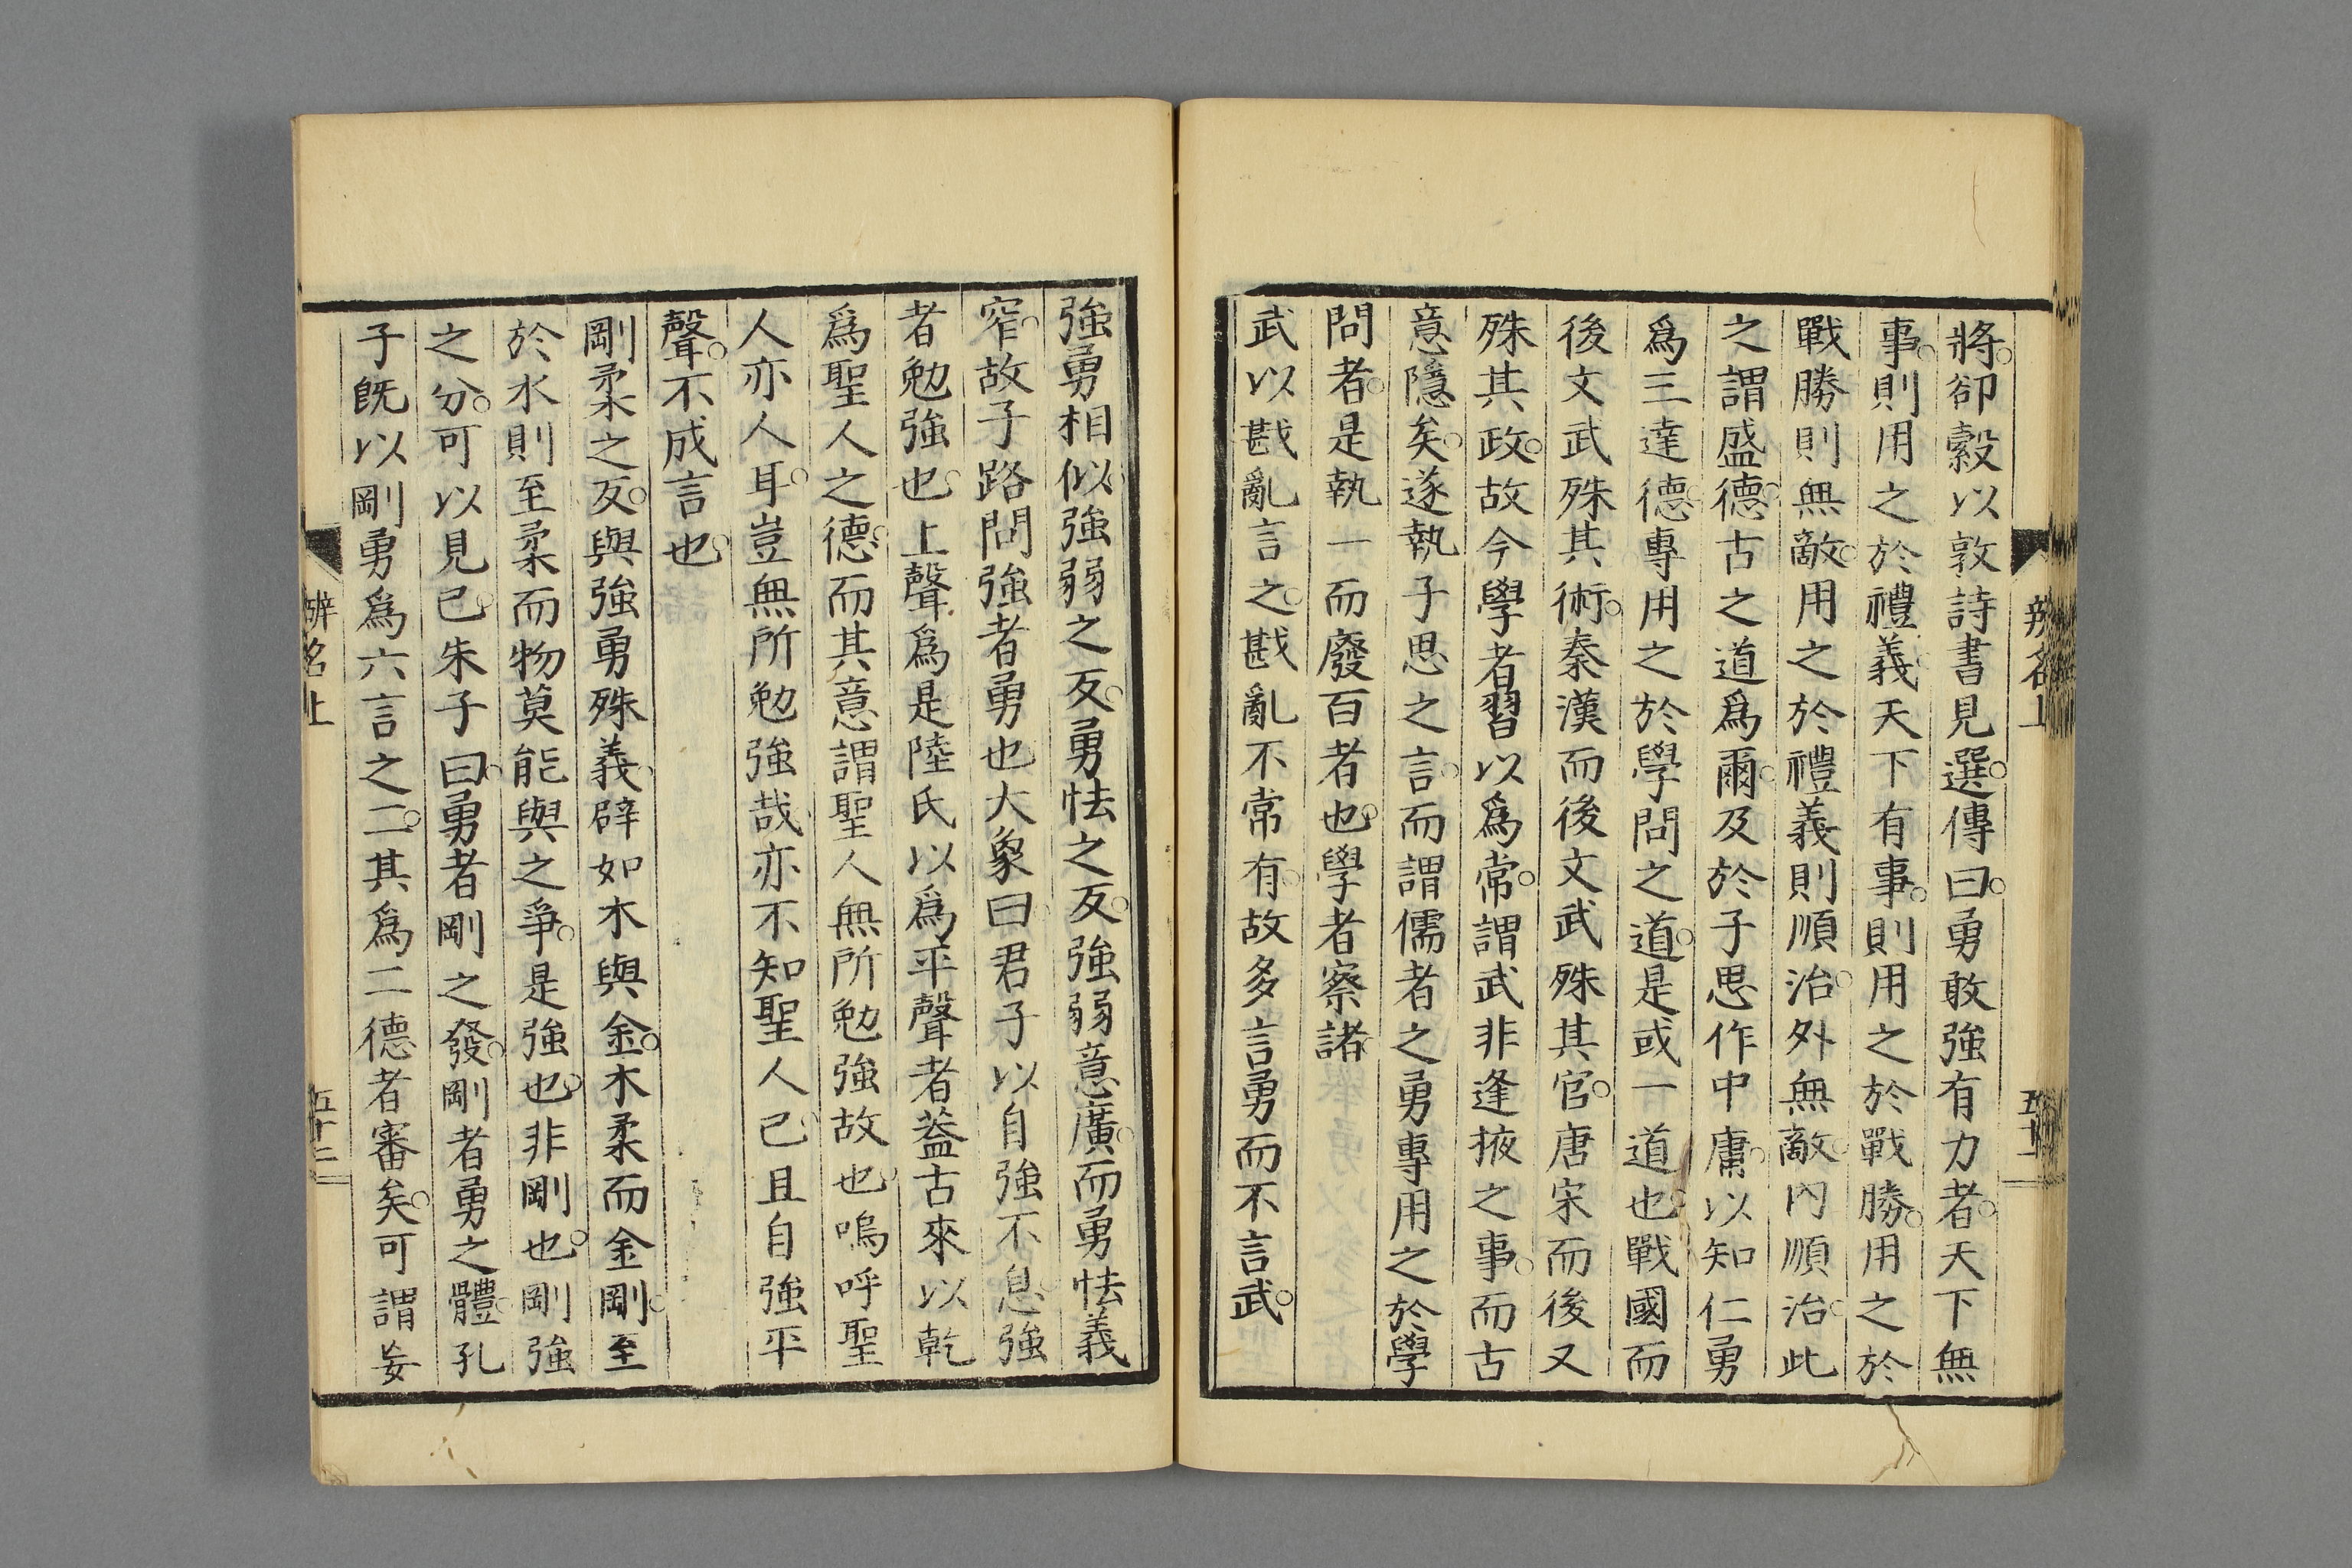 將。卻縠以敦詩書見選。傳曰。勇敢強有力者。天下無
事。則用之於禮義。天下有事。則用之於戰勝。用之於
戰勝則無敵。用之於禮義則順治。外無敵。內順治。此
之謂盛德。古之道爲爾。及於子思作中庸。以知仁勇
爲三達德。專用之於學問之道。是或一道也。戰國而
後文武殊其術。秦漢而後文武殊其官。唐宋而後又
殊其政。故今學者習以爲常。謂武非逢掖之事。而古
意隱矣。遂執子思之言。而謂儒者之勇專用之於學
問者。是執一而廢百者也。學者察諸。
武以戡亂言之。戡亂不常有。故多言勇而不言武。
辨名上
強勇相似。強弱之反。勇怯之反。強弱意廣。而勇怯義
窄。故子路問強者勇也。大象曰。君子以自強不息。強
者勉強也。上聲。爲是陸氏以爲平聲者。葢古來以乾
爲聖人之德。而其意謂聖人無所勉強故也。嗚呼聖
人亦人耳。豈無所勉強哉。亦不知聖人已。且自強平
聲。不成言也。
剛柔之反。與強勇殊義。辟如木與金。木柔而金剛。至
於水則至柔而物莫能與之爭。是強也。非剛也。剛強
之分。可以見已。朱子曰。勇者剛之發。剛者勇之體。孔
子既以剛勇爲六言之二。其爲二德者審矣。可謂妄
辨名上
五十二